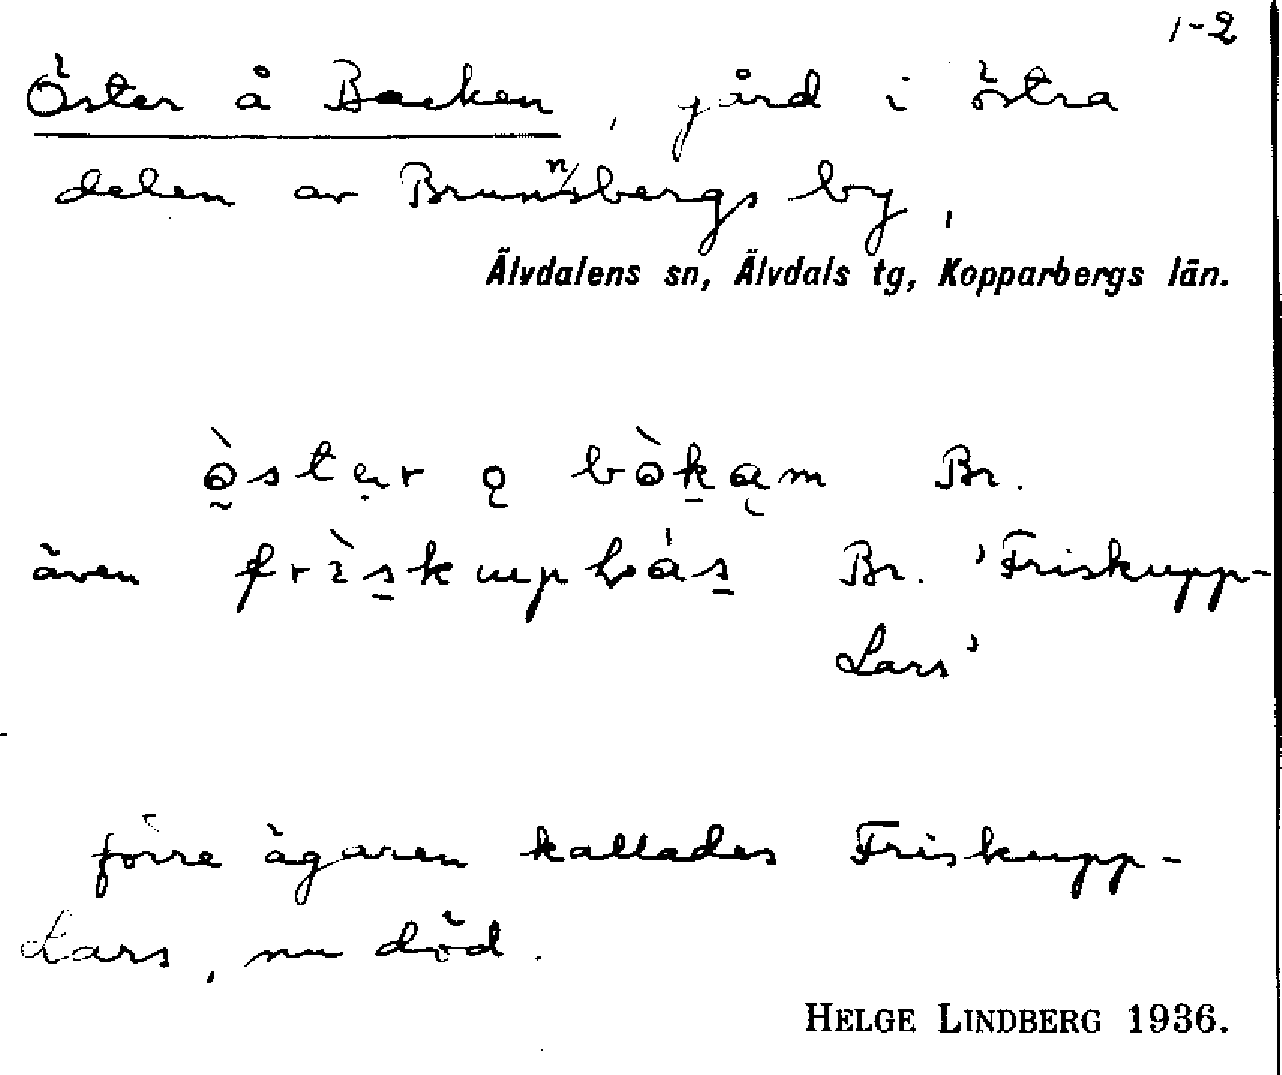 1-2
Öster å Backen, gård i östra
delen av Brunnsbergs by,
Älvdalens sn, Älvdals tg, Kopparbergs län.
Br.
även Br. 'Friskupp-
Lars'
förre ägaren kallades Friskupp-
Lars, nu död.
HELGE LINDBERG 1936.